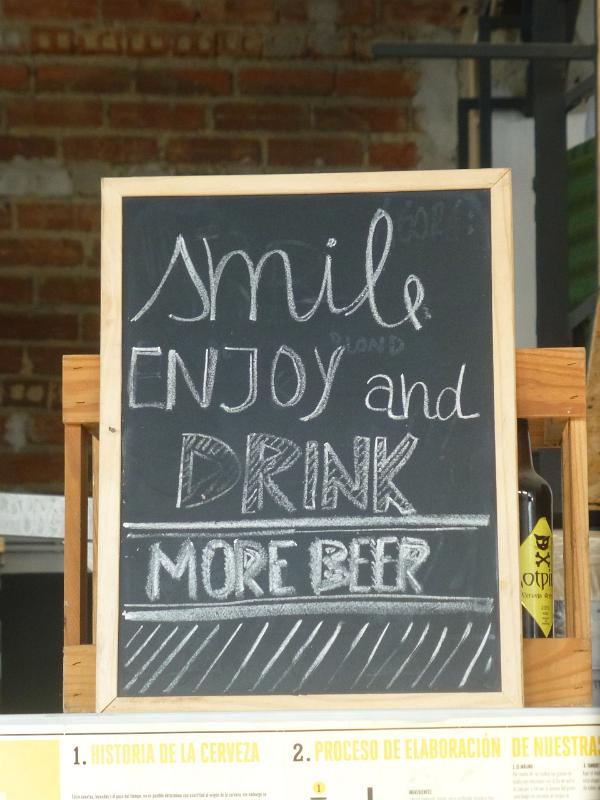 smile
ENJOY and
DRINK
MORE BEER
BLOND
1. HISTORIA DE LA CERVEZA
2. PROCESO DE ELABORACIÓN DE NUESTRAS
1